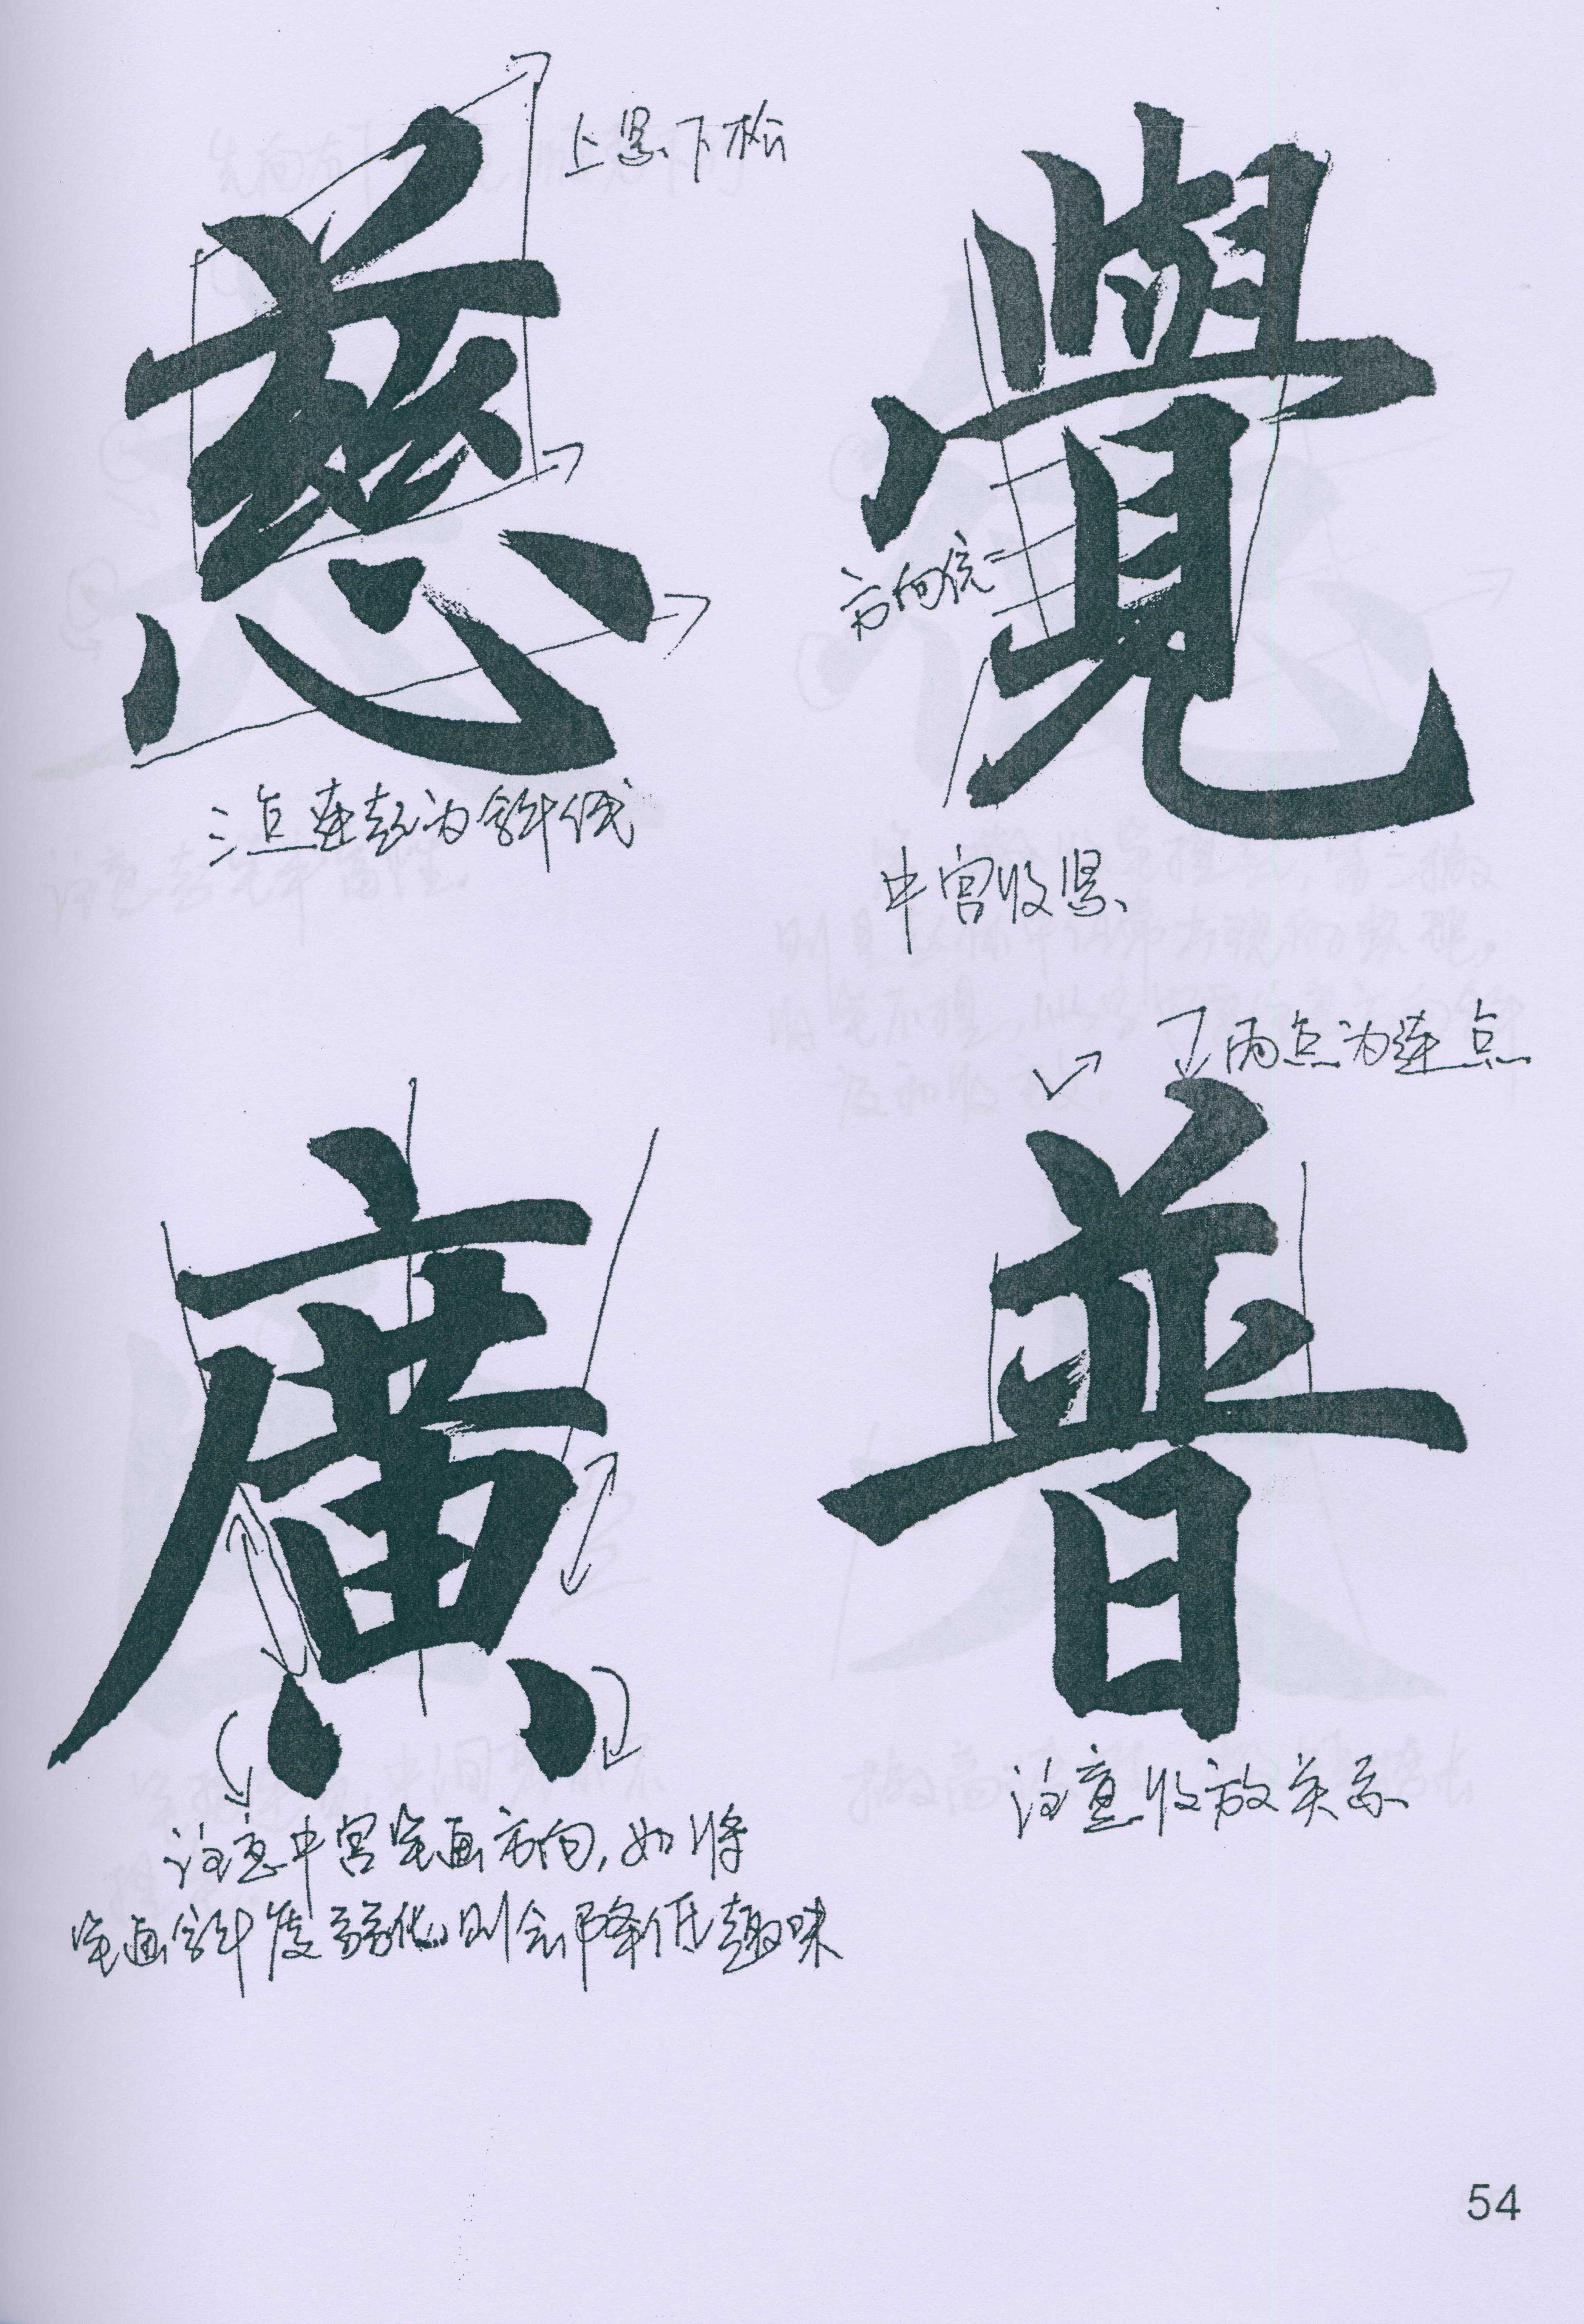 慈
上紧下松
三点连起为斜线
覺
方向统一
中宫收紧
廣
注意中宫笔画方向，如将
笔画斜度弱化则会降低趣味
普
两点为连点
注意收放关系
54